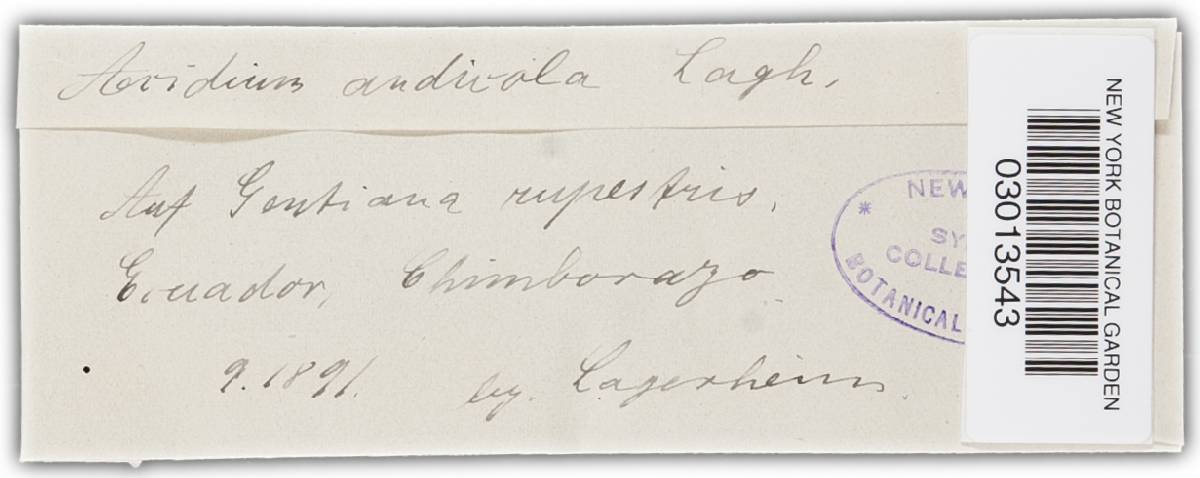 Aecidium andicola Lagh.
Auf Gentiana rupestris.
Ecuador, Chimborazo
9. 1891. leg. Lagerheim.
NEW
SY
COLLE
BOTANICAL
NEW YORK BOTANICAL GARDEN
03013543